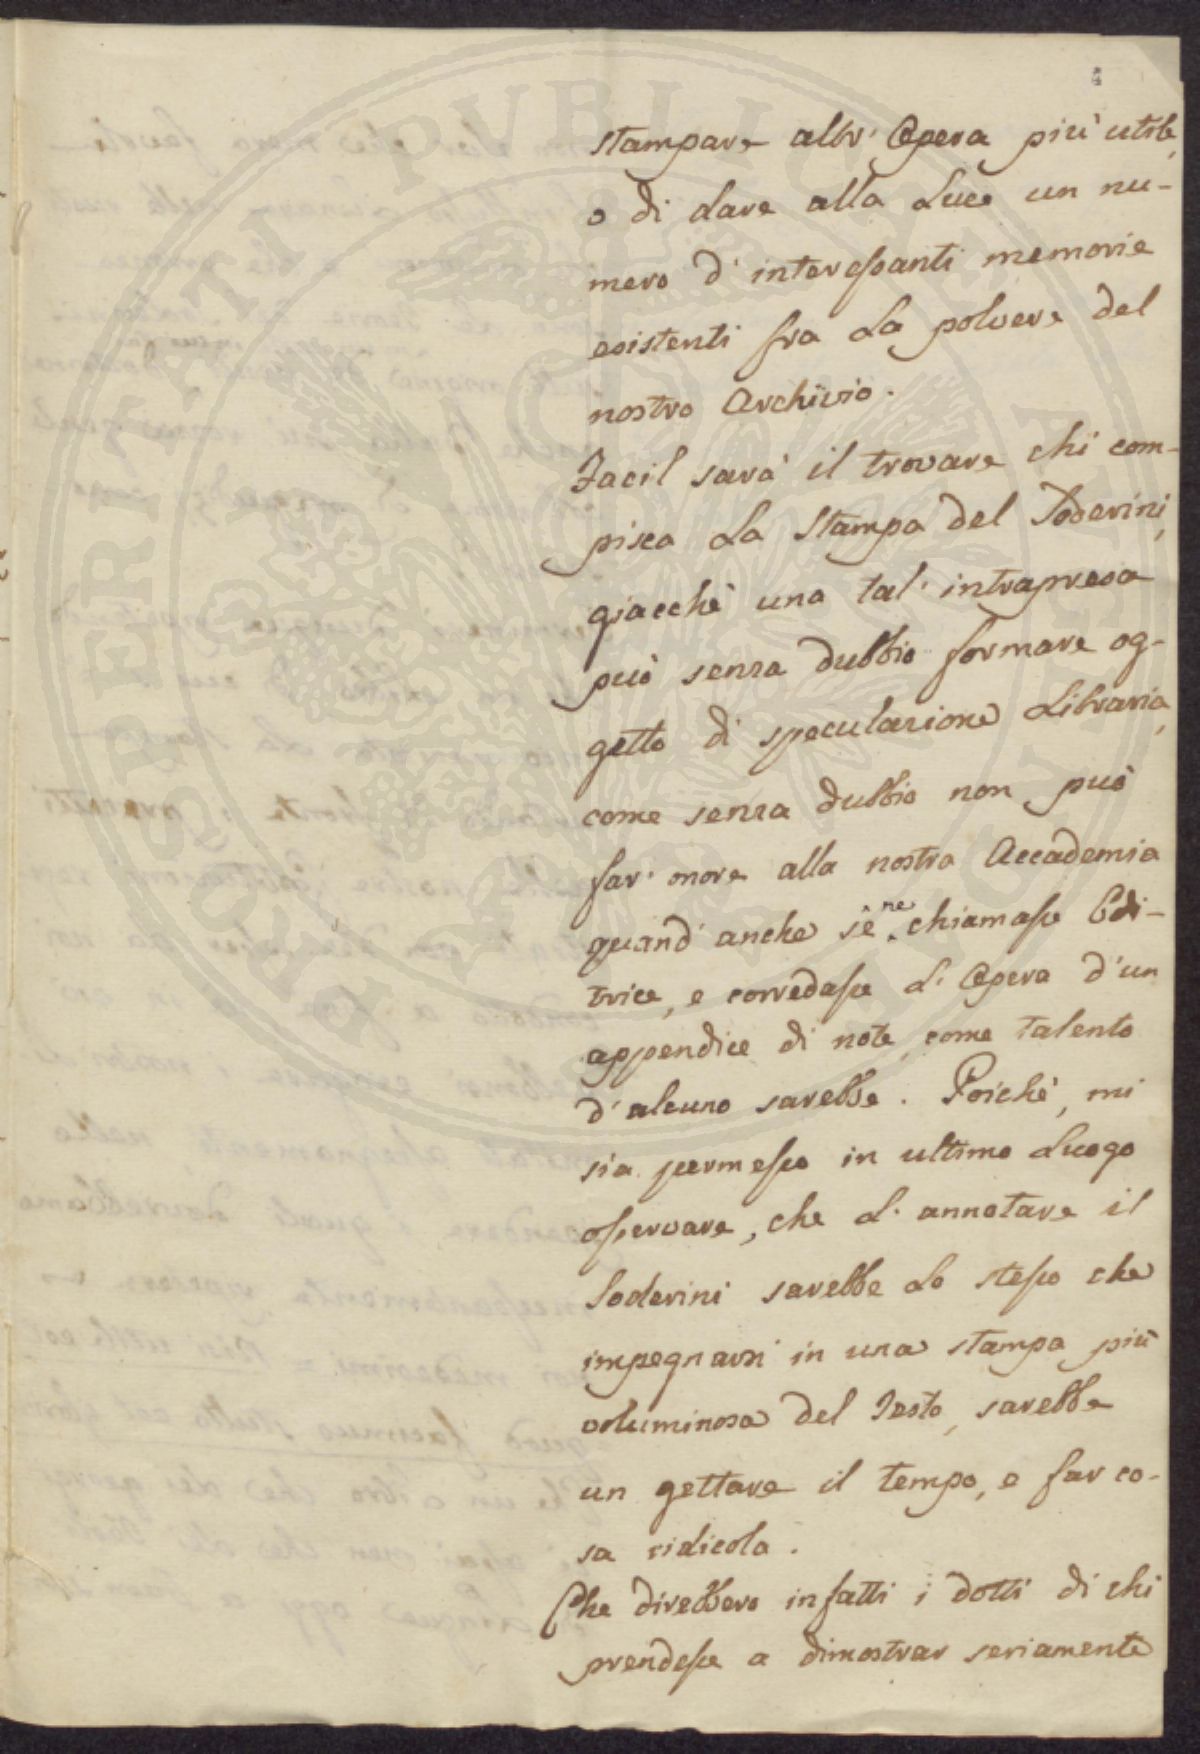 4
stampare altr' Opera più utile,
o di dare alla Luce un nu-
mero d' interessanti memorie
esistenti fra La polvere del
nostro Archivio.
Facil sarà il trovare chi com-
pisca La Stampa del Soderini,
giacchè una tal' intrapresa
può senza dubbio formare og-
getto di speculazione Libraria,
come senza dubbio non può
far' onore alla nostra Accademia
quand' anche se ne chiamasse Edi-
trice, e corredasse L' Opera d' un
appendice di note, come talento
d' alcuno sarebbe. Poichè, mi
sia permesso in ultimo Luogo
osservare, che L' annotare il
Soderini sarebbe Lo stesso che
impegnarsi in una stampa più
voluminosa del Testo, sarebbe
un gettare il tempo, e far co-
sa ridicola.
Che direbbero infatti i dotti di chi
prendesse a dimostrar seriamente
PROSPERITATI PVBLICAE AVGENDAE